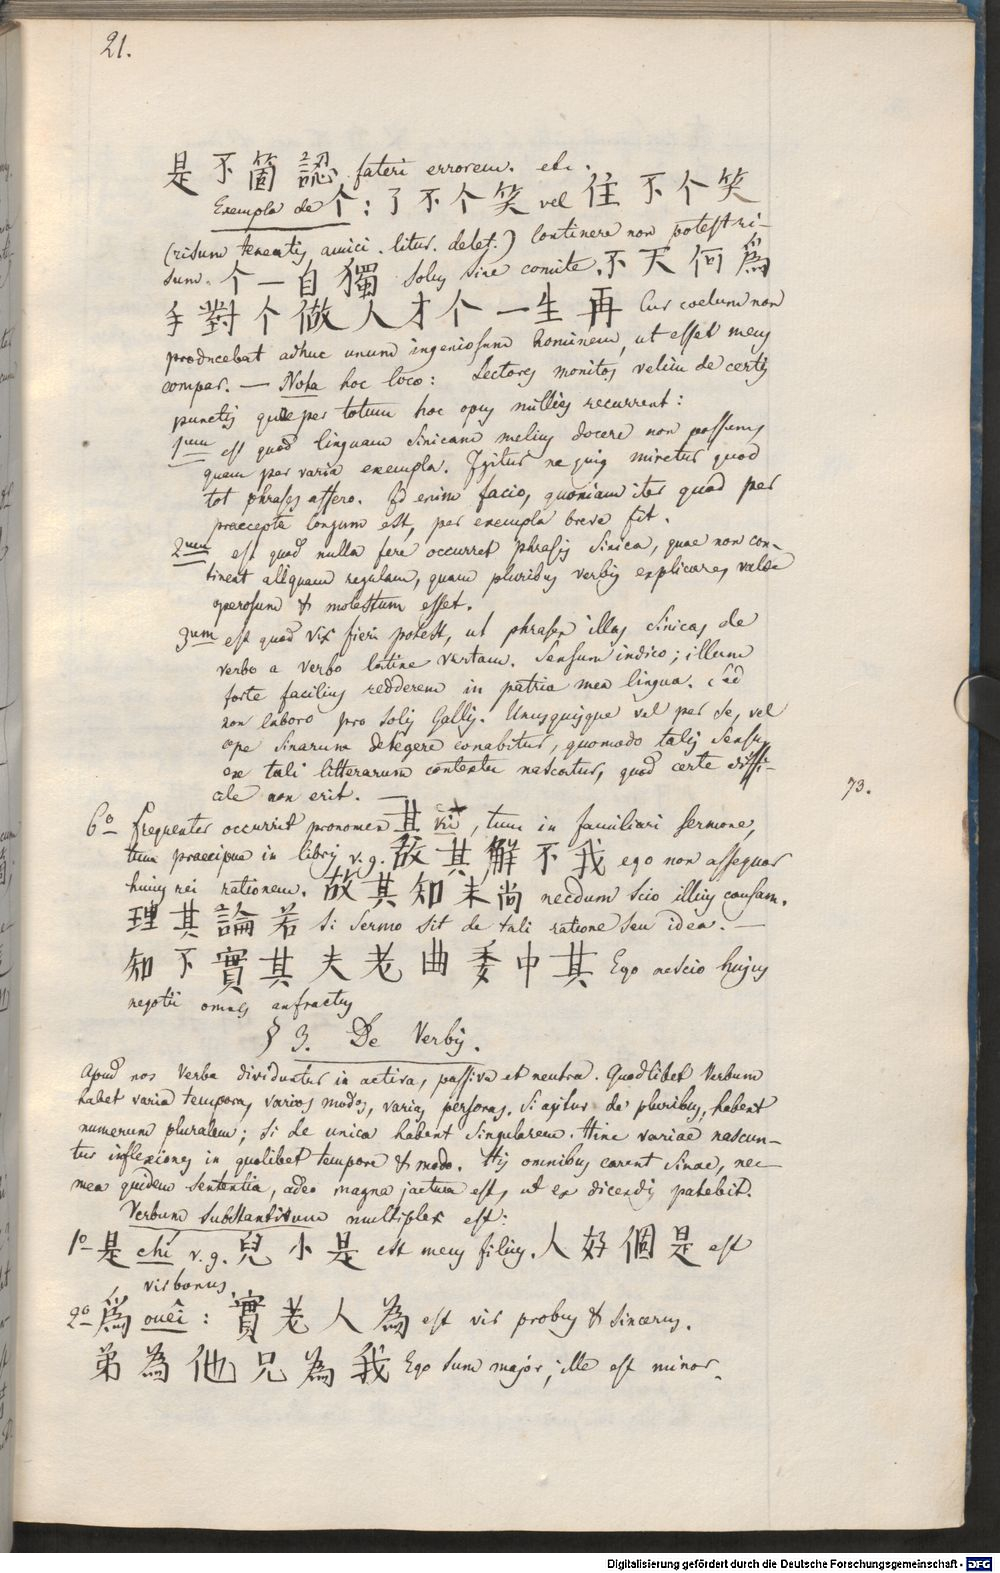 21.
是不箇認 fateri errorem. etc.
Exempla de 个 : 了不个笑 vel 住不个笑
(risum teneatis, amici. litur. delet.) Continere non potest ri-
sum. 个一自獨 Solus sine comite. 不天何爲
手對个做人才个一生再 Cur coelum non
producebat adhuc unum ingeniosum hominem, ut esset meus
compar. — Nota hoc loco: Lectores monitos velim de certis
punctis quae per totum hoc opus millies recurrent:
1um est quod linguam Sinicam melius docere non possum,
quam per varia exempla. Igitur ne quis miretur quod
tot phrases affero. Id enim facio, quoniam iter quod per
praecepta longum est, per exempla breve fit.
2um est quod nulla fere occurret phrasis Sinica, quae non con-
tineat aliquam regulam, quam pluribus verbis explicare, valde
operosum & molestum esset.
3um est quod vix fieri potest, ut phrases illas Sinicas de
verbo a verbo latine vertam. Sensum indico; illum
forte facilius redderem in patria mea lingua. Sed
non laboro pro solis Gallis. Unusquisque vel per se, vel
ope Sinarum detegere conabitur, quomodo talis sensus
ex tali litterarum contextu nascatur, quod certe diffi-
cile non erit. —
73.
6o frequenter occurrit pronomen 其 , tum in familiari sermone,
tum praecipue in libris v.g. 故其解不我 ego non assequor
hujus rei rationem. 故其知未尚 necdum scio illius causam.
理其論若 Si sermo sit de tali ratione seu idea. —
知不實其夫老曲委中其 Ego nescio hujus
negotii omnes anfractus
§ 3. De Verbis.
Apud nos Verba dividuntur in activa, passiva et neutra. Quodlibet Verbum
habet varia tempora, varios modos, varias personas. Si agitur de pluribus, habent
numerum pluralem; si de unica habent singularem. Hinc variae nascun-
tur inflexiones in quolibet tempore & modo. His omnibus carent Sinae, nec
mea quidem sententia, adeo magna jactura est, ut ex dicendis patebit.
Verbum substantivum multiplex est:
1o 是 chi v.g. 兒小是 est meus filius. 人好個是 est
vir bonus.
2o 爲 ouêi : 實老人為 est vir probus & sincerus.
弟為他兄為我 Ego sum major; ille est minor.
Digitalisierung gefördert durch die Deutsche Forschungsgemeinschaft - DFG